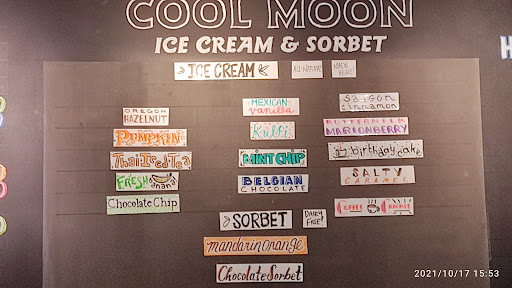 COOL MOON
ICE CREAM & SORBET
ICE CREAM
ALL NATURAL
MADE HERE!
OREGON
HAZELNUT
PUMPKIN
Thai Iced Tea
FRESH
banana
Chocolate Chip
MEXICAN
vanilla
Kulfi
MINT CHIP
BELGIAN
CHOCOLATE
SAIGON
cinnamon
BUTTERMILK
MARIONBERRY
birthday cake
SALTY
CARAMEL
COFFEE
SORBET
DAIRY
FREE!
mandarin orange
Chocolate Sorbet
2021/10/17 15:53